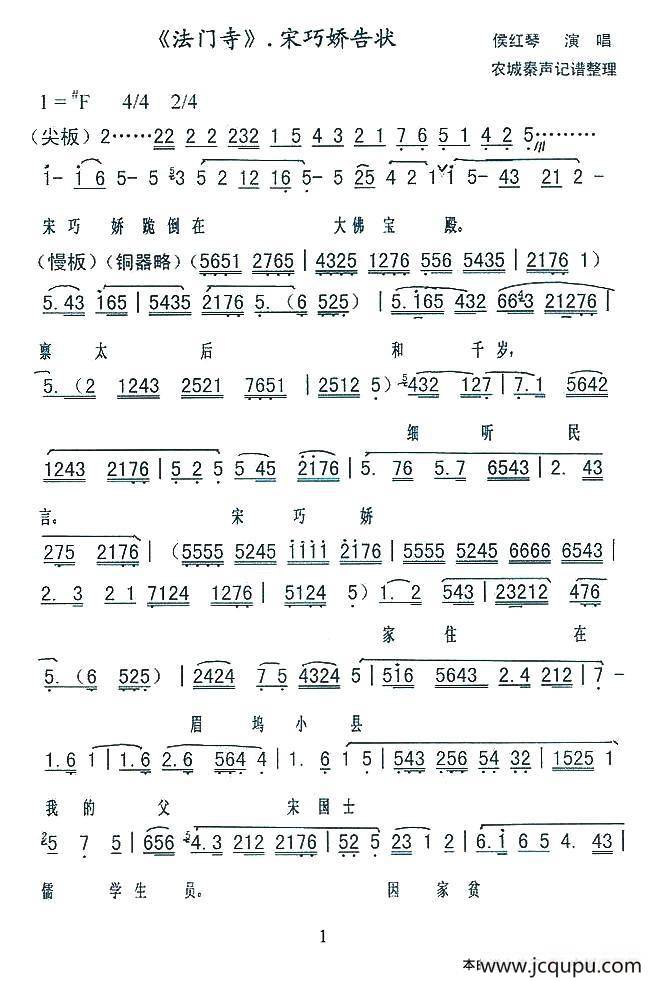 《法门寺》.宋巧娇告状
侯红琴 演 唱
农城秦声记谱整理
1=#F 4/4 2/4
(尖板) 2……22 2 2 232 1 5 4 3 2 1 7 6 5 1 4 2 5………
i- i 6 5- 5 3 5 2 12 16 5- 5 25 4 2 1 i 5- 43 21 2 -
宋 巧 娇 跪 倒 在 大 佛 宝 殿。
(慢板)(铜器略)(5651 2765|4325 1276 556 5435|2176 1)
5.43 i65|5435 2176 5.(6 525)|5.i65 432 6643 21276|
禀 太 后 和 千 岁,
5.(2 1243 2521 7651|2512 5) 432 127|7.1 5642
细 听 民
1243 2176|5 2 5 5 45 2176|5. 76 5.7 6543|2. 43
言。 宋 巧 娇
275 2176|(5555 5245 iiii 2176|5555 5245 6666 6543|
2. 3 2 1 7124 1276|5124 5) 1. 2 543|23212 476
家 住 在
5.(6 525)|2424 7 5 4324 5|516 5643 2.4 212|7 -
眉 坞 小 县
1.6 1|1.6 2.6 564 4|1. 6 1 5|543 256 54 32|1525 1
我 的 父 宋 国 士
5 7 5|656 4.3 212 2176|52 5 23 1 2|6.i 6 5 4. 43|
儒 学 生 员。 因 家 贫
1
www.jcqupu.com